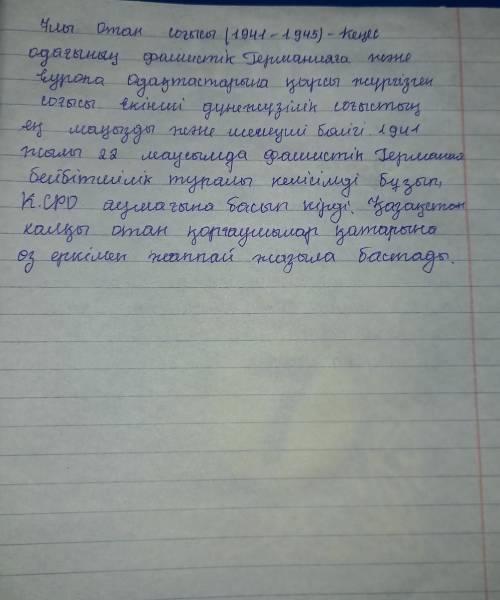 Ұлы Отан соғысы (1941-1945) - Кеңес
одағының фашистік Германияға және
Еуропа Одақтастарына қарсы жүргізген
соғысы екінші дүнежүзілік соғыстың
ең маңызды және шешуші бөлігі 1941
жылы 22 маусымда фашистік Германия
бейбітшілік туралы келісімді бұзып,
КСРО аумағына басып кірді. Қазақстан
халқы отан қорғаушылар қатарына
өз еркімен жаппай жазыла бастады.